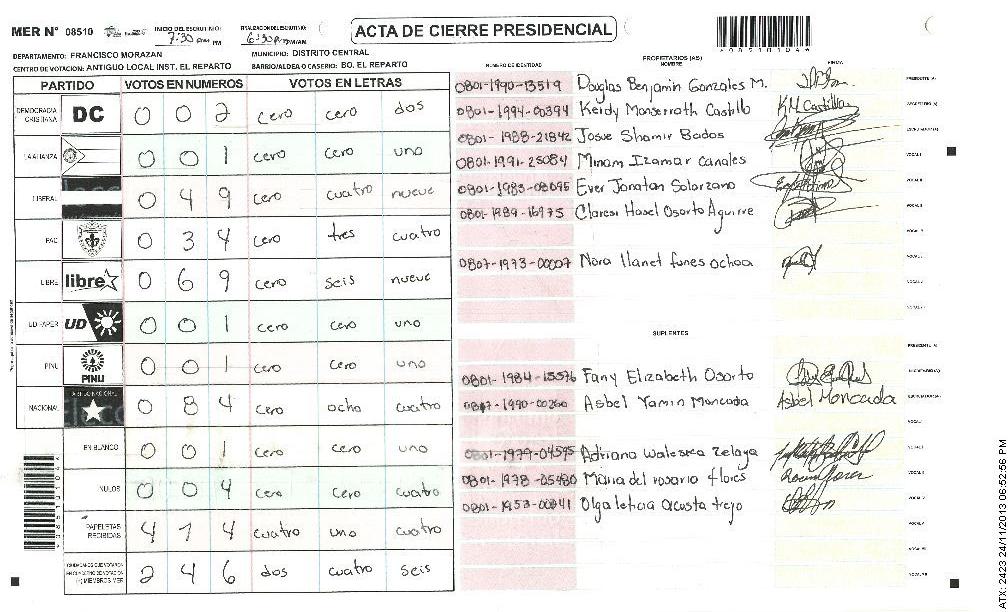 MER N° 08510
INICIO DEL ESCRUTINIO:
7:30 PM
FINALIZACION DEL ESCRUTINIO:
6:30 PM/AM
ACTA DE CIERRE PRESIDENCIAL
DEPARTAMENTO: FRANCISCO MORAZAN
MUNICIPIO: DISTRITO CENTRAL
CENTRO DE VOTACION: ANTIGUO LOCAL INST. EL REPARTO
BARRIO/ALDEA O CASERIO: BO. EL REPARTO
PARTIDO VOTOS EN NUMEROS VOTOS EN LETRAS
DEMOCRACIA CRISTIANA DC 0 0 2 cero cero dos
LA ALIANZA 0 0 1 cero cero uno
LIBERAL 0 4 9 cero cuatro nueve
PAC 0 3 4 cero tres cuatro
LIBRE libre 0 6 9 cero seis nueve
UD FAPER UD 0 0 1 cero cero uno
PINU PINU 0 0 1 cero cero uno
NACIONAL 0 8 4 cero ocho cuatro
EN BLANCO 0 0 1 cero cero uno
NULOS 0 0 4 cero cero cuatro
PAPELETAS RECIBIDAS 4 1 4 cuatro uno cuatro
(+) MIEMBROS MER 2 4 6 dos cuatro seis
NUMERO DE IDENTIDAD
PROPIETARIOS (AS)
NOMBRE
FIRMA
0801-1990-13519 Douglas Benjamin Gonzales M. PRESIDENTE (A)
0801-1994-00394 Keidy Monserrath Castillo KM Castillo SECRETARIO (A)
0801-1988-21842 Josue Shamir Bados
0801-1991-25084 Miriam Izamar Canales VOCAL I
0801-1983-08095 Ever Jonatan Solorzano VOCAL II
0801-1989-16975 Claresi Hasel Osorto Aguirre
0807-1973-00007 Nora Ilanet funes ochoa
SUPLENTES
PRESIDENTE (A)
Fany Elizabeth Osorto
1990-00260 Asbel Yamin Moncada Asbel Moncada
0801-1979-04595 Adriana Waleska Zelaya
0801-1978-05480 Maria del rosario flores
0801-1953-00841 Olga leticia acosta trejo
ATX: 2423 24/11/2013 06:52:56 PM